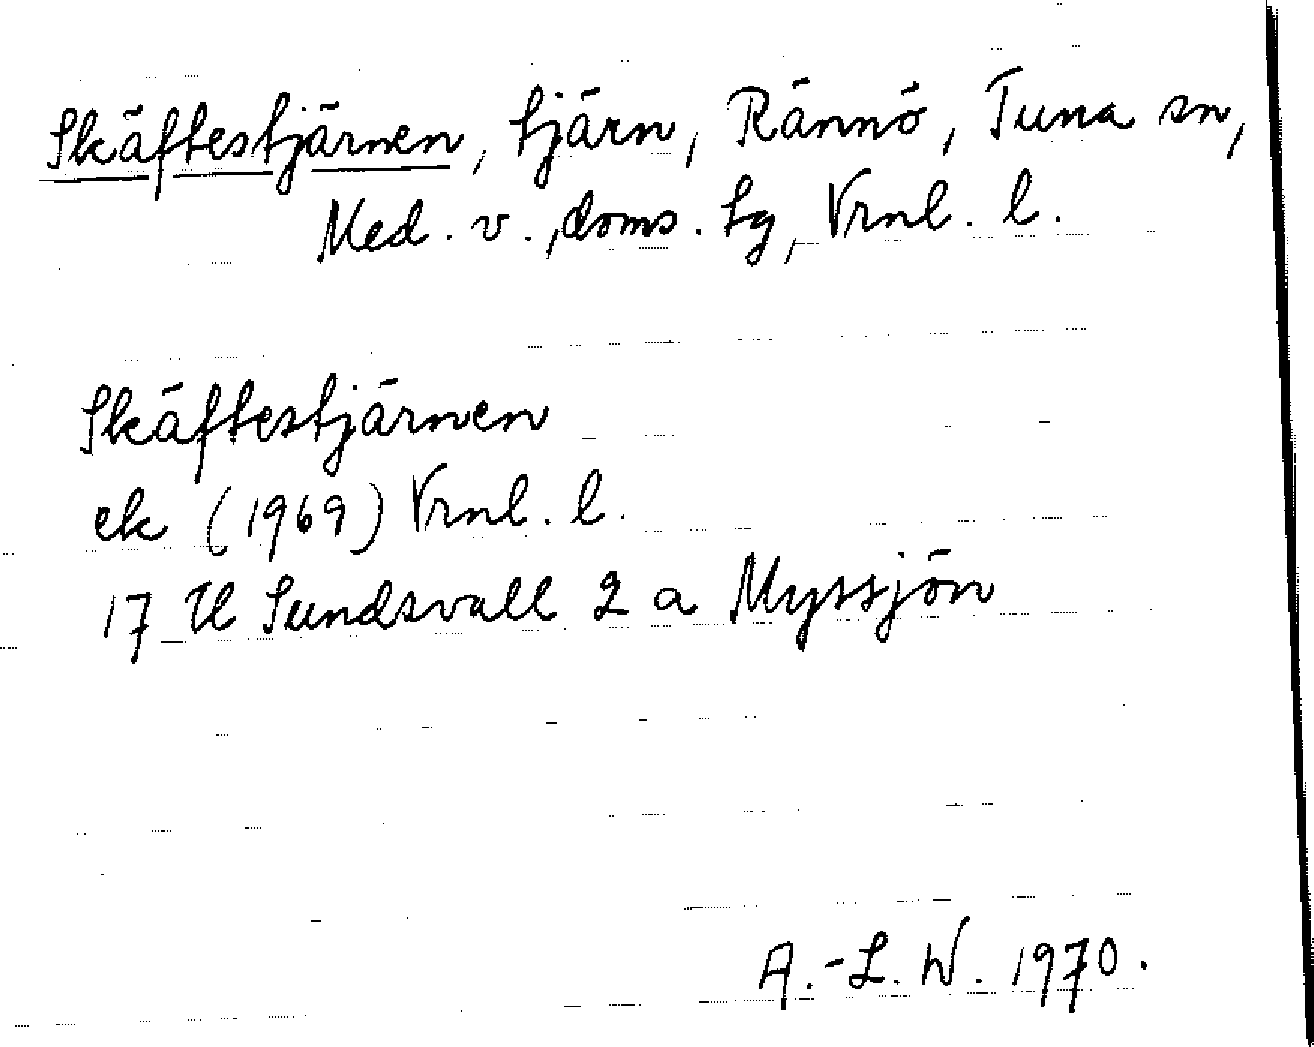 Skäftestjärnen, tjärn, Rännö, Tuna sn,
Med. v., doms. tg, Vrnl. l.
Skäftestjärnen
ek (1969) Vrnl. l.
17 H Sundsvall 2 a Myssjön
A.-L. W. 1970.